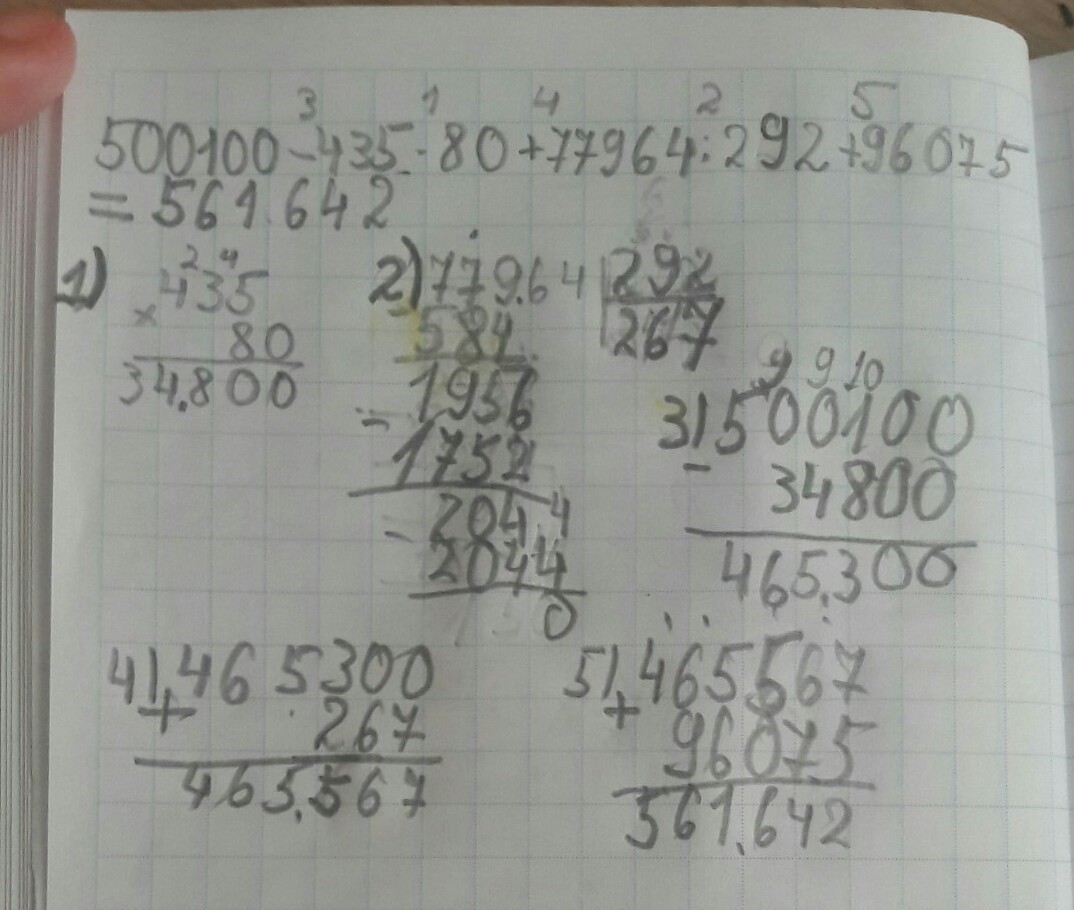 3 1 4 2 5
500100-435·80+77964:292+96075
=561.642
1) 2 4
×435
80
34.800
2) 779.64 | 292
- 584 | 267
1956
- 1752
- 2044
2044
0
9 9 10
3) 500100
- 34800
465.300
4) 465300
+ 267
465.567
5) 465567
+ 96075
561.642